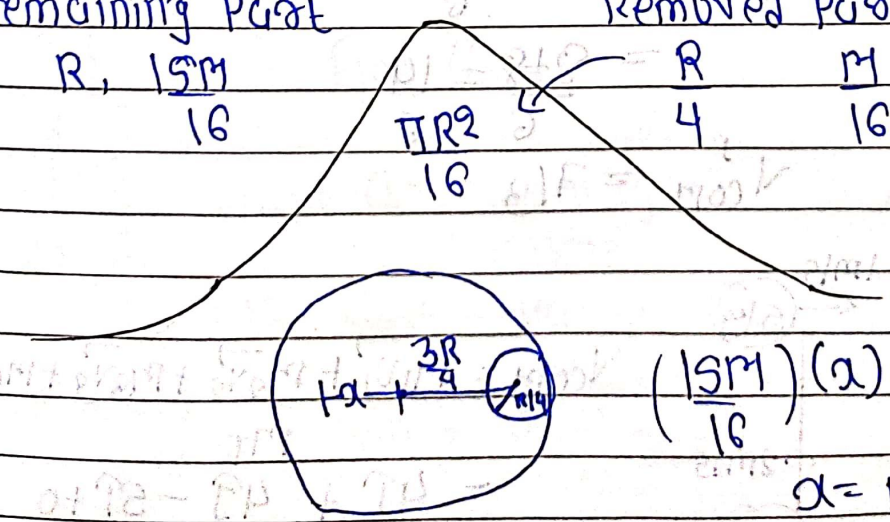 emaining Part Removed Par
R, 15M/16 πR²/16 R/4 M/16
3R/4
x R/4 (15M/16)(x)
x=